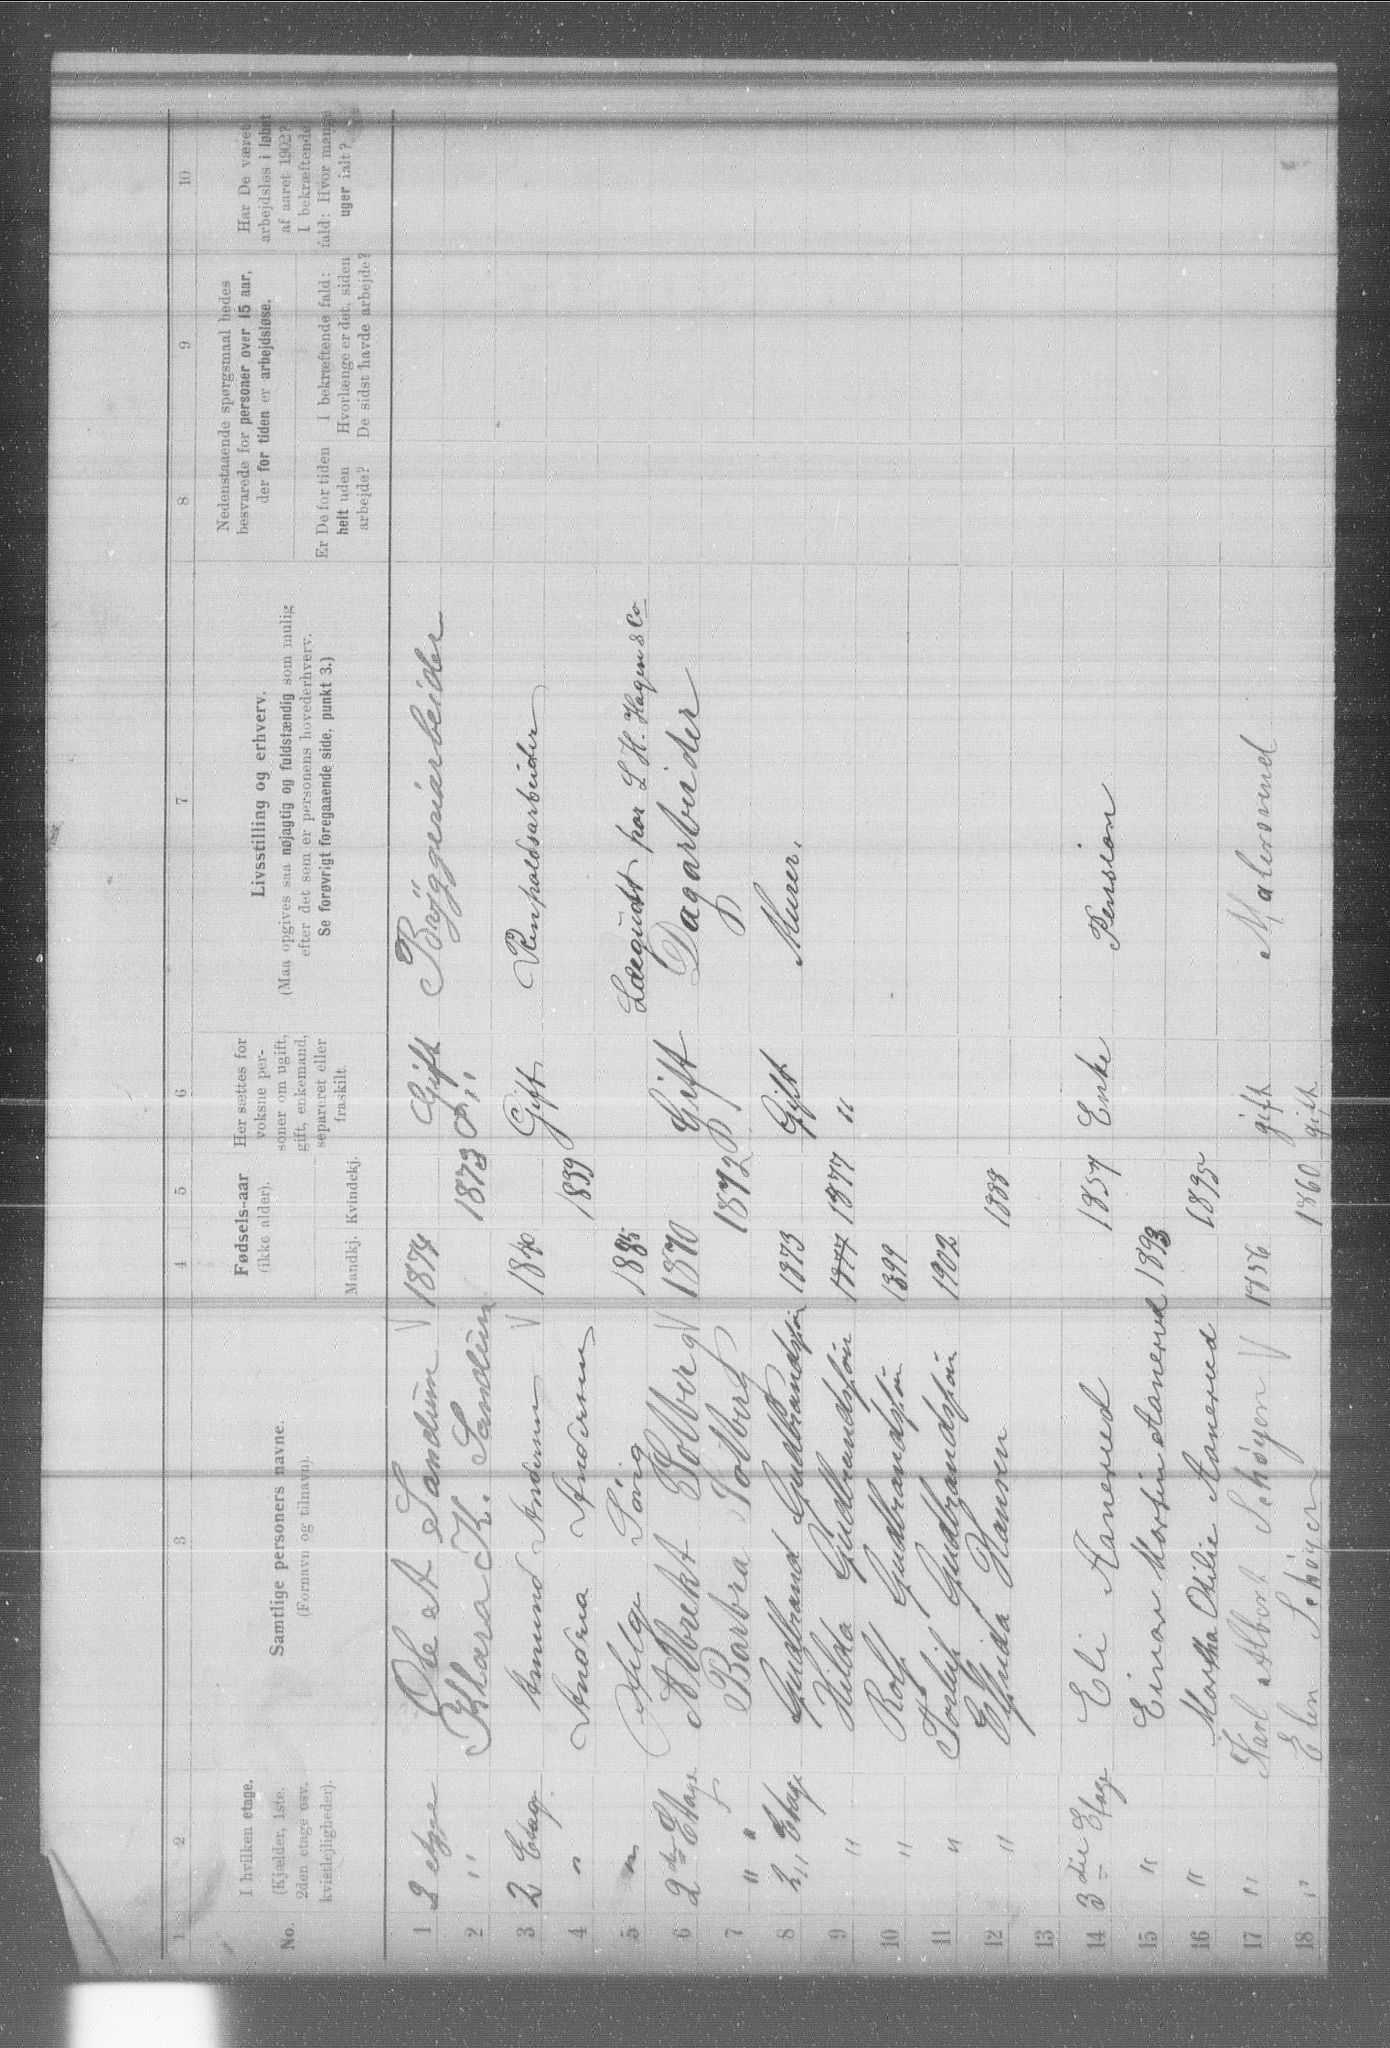 1 2 3 4 5 6 7 8 9 10
No.
I hvilken etage.
(Kjælder, 1ste.
2den etage osv.
kvistlejligheder).
Samtlige personers navne.
(Fornavn og tilnavn).
Fødsels-aar
(ikke alder).
Mandkj. Kvindekj.
Her sættes for
voksne per-
soner om ugift,
gift, enkemand,
separeret eller
fraskilt.
Livsstilling og erhverv.
(Maa opgives saa nøjagtig og fuldstændig som mulig
efter det som er personens hovederhverv.
Se forøvrigt foregaaende side, punkt 3.)
Nedenstaaende spørgsmaal bedes
besvarede for personer over 15 aar,
der for tiden er arbejdsløse.
Er De for tiden
helt uden
arbejde?
I bekræftende fald:
Hvorlænge er det, siden
De sidst havde arbejde?
Har De været
arbejdsløs i løbet
af aaret 1902?
I bekræftende
fald: Hvor mange
uger ialt?
1 2 Ole A Sandum V 1874 Gift Bryggeriarbeider
2 " Klara K. Sandum 1873 "
3 2 Etag. Amund Andersen V 1840 Gift Renholdsarbeider
4 " Andrea Andersen 1839
5 " Helge 1885 L. H. Hagen & Co
6 2den Etage Albrekt Solberg V 1870 Gift Dagarbeider
7 " " Barbra Solberg 1872
8 2 " Etage Gudbrand Gudbrandsen 1873 Gift Murer.
9 " Hilda Gudbrandsen 1877 1877 "
10 " Rolf Gudbrandsen 1899
11 " Torleif Gudbrandsen 1902
12 " Elfrida Hansen 1888
13
14 3die Etage Eli Aanerud 1857 Enke Pension
15 " Einar Martin Aanerud 1893
16 " Martha Otilie Aanerud 1895
17 " Karl Albert Schøyen V 1856 gift Malersvend
18 " Elen Schøyen 1860 gift